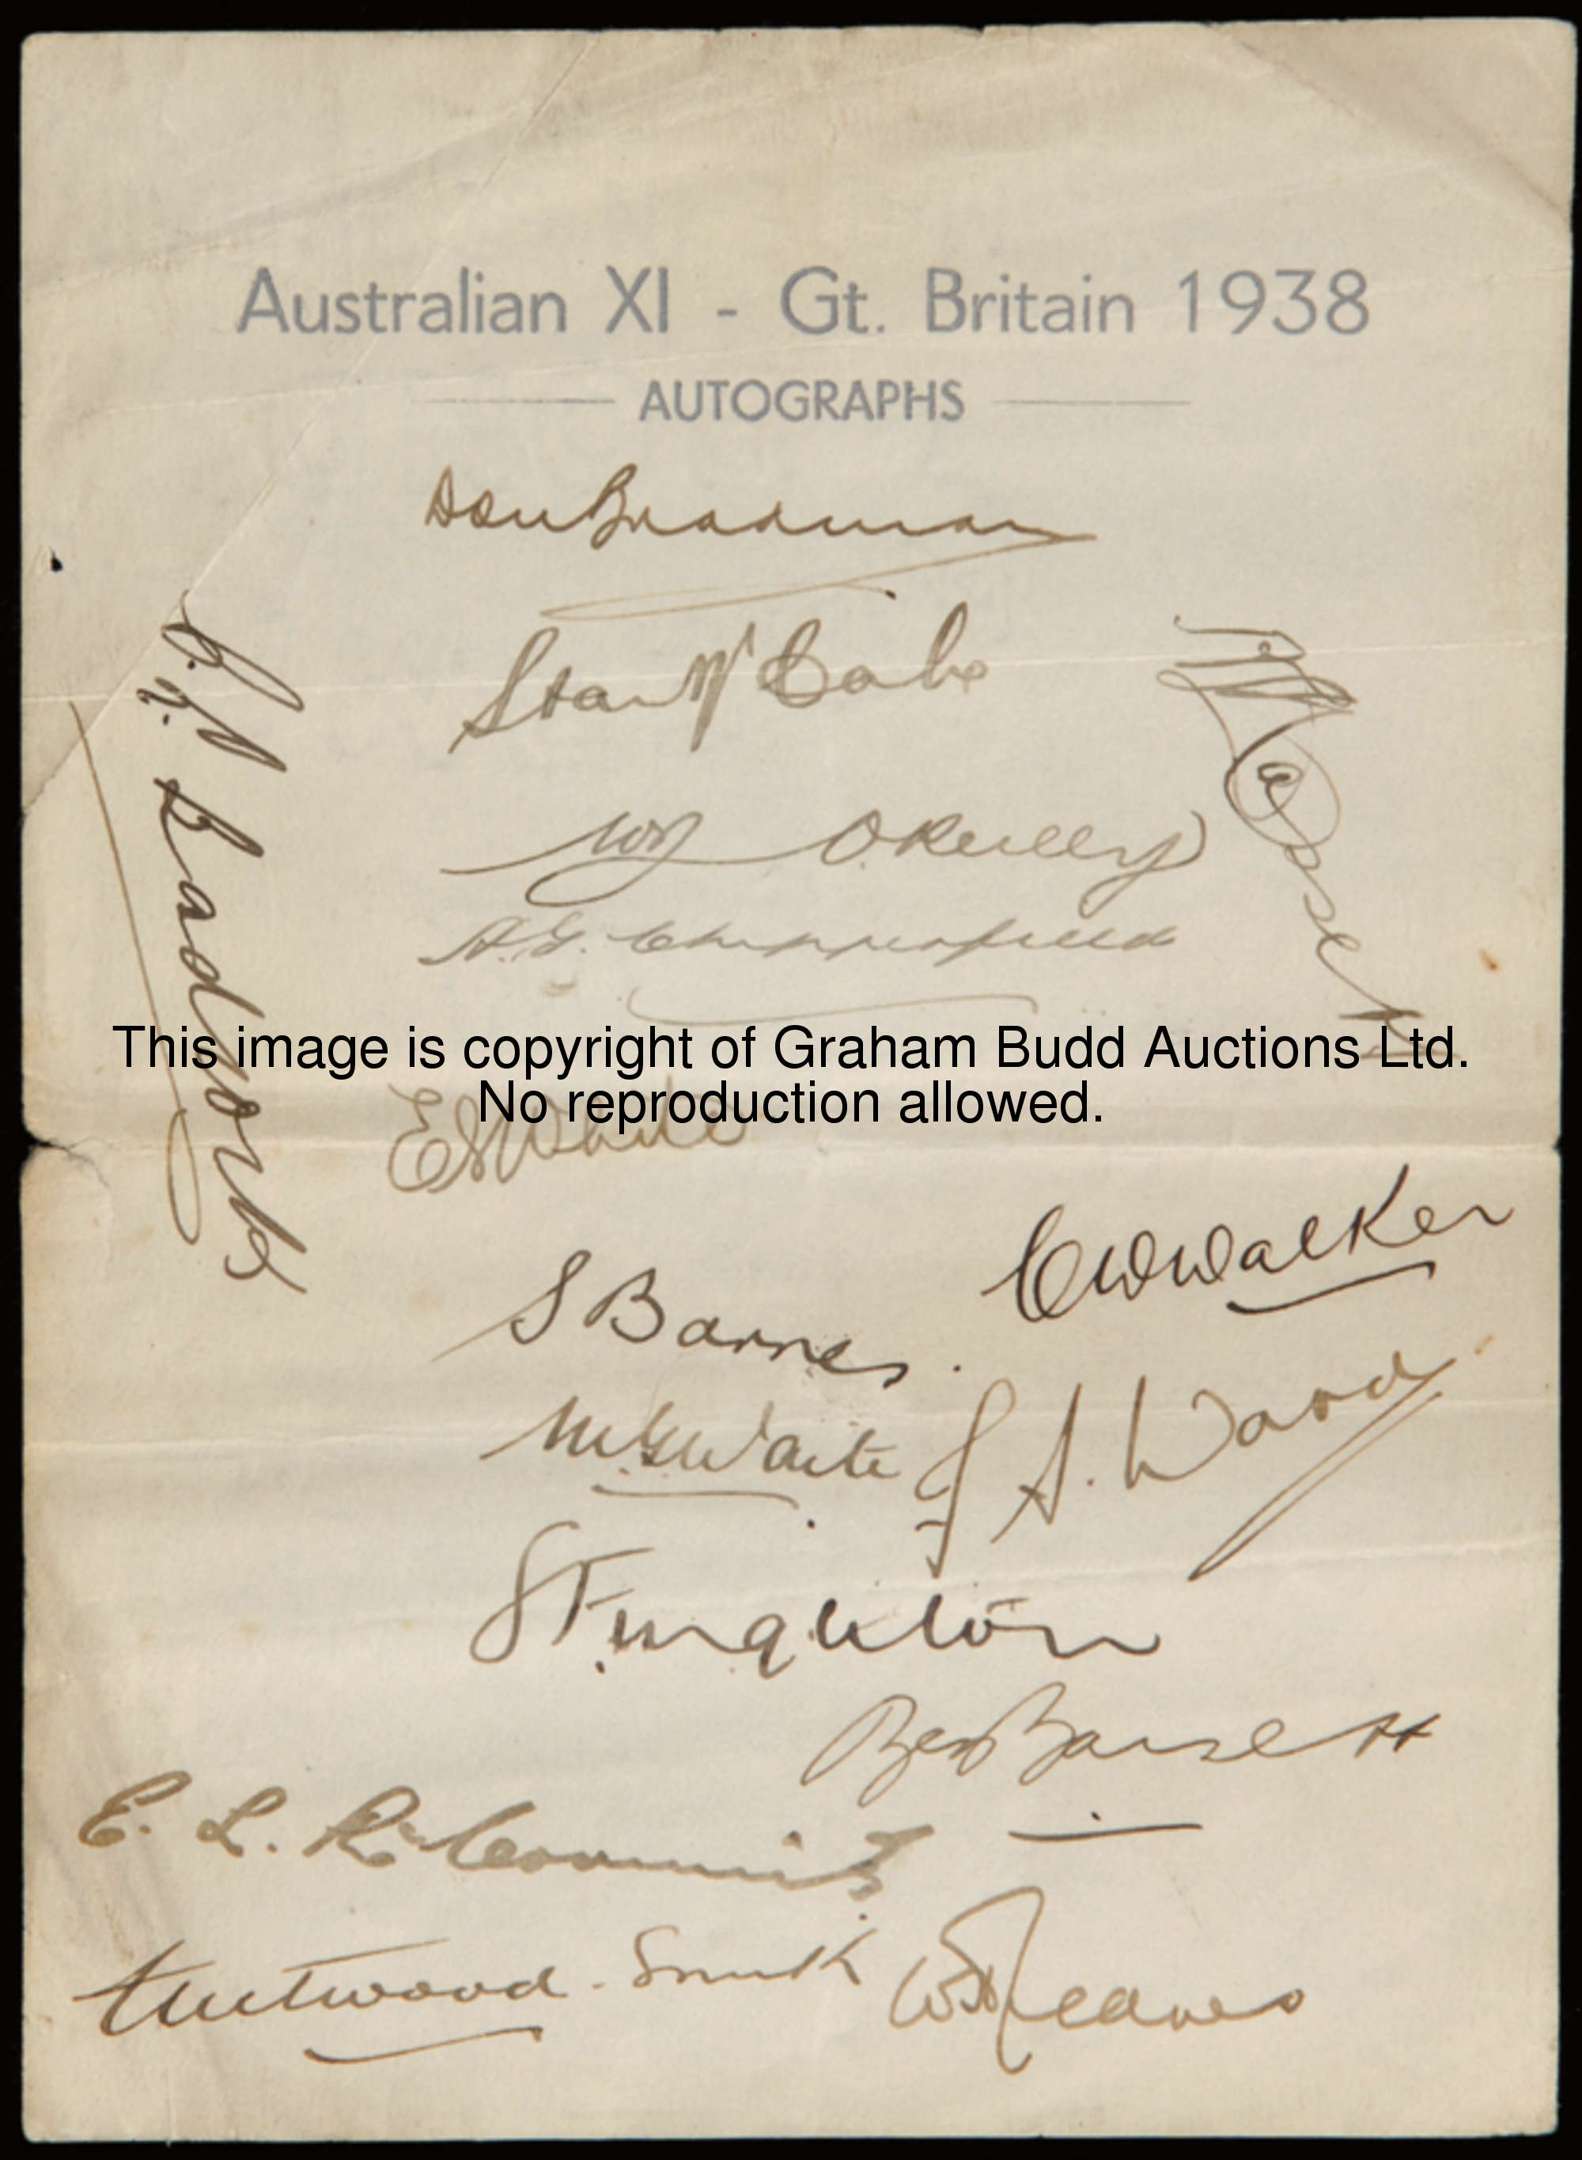 Australian XI - Gt. Britain 1938
AUTOGRAPHS
Don Bradman
Stan McCabe
WJ O'Reilly
A.G. Chipperfield
C.L. Badcock
This image is copyright of Graham Budd Auctions Ltd.
No reproduction allowed.
ES White
CW Walker
S Barnes.
MG Waite
F. A. Ward
J Fingleton
Ben Barnett
E. L. McCormick
Fleetwood-Smith
W H Jeanes